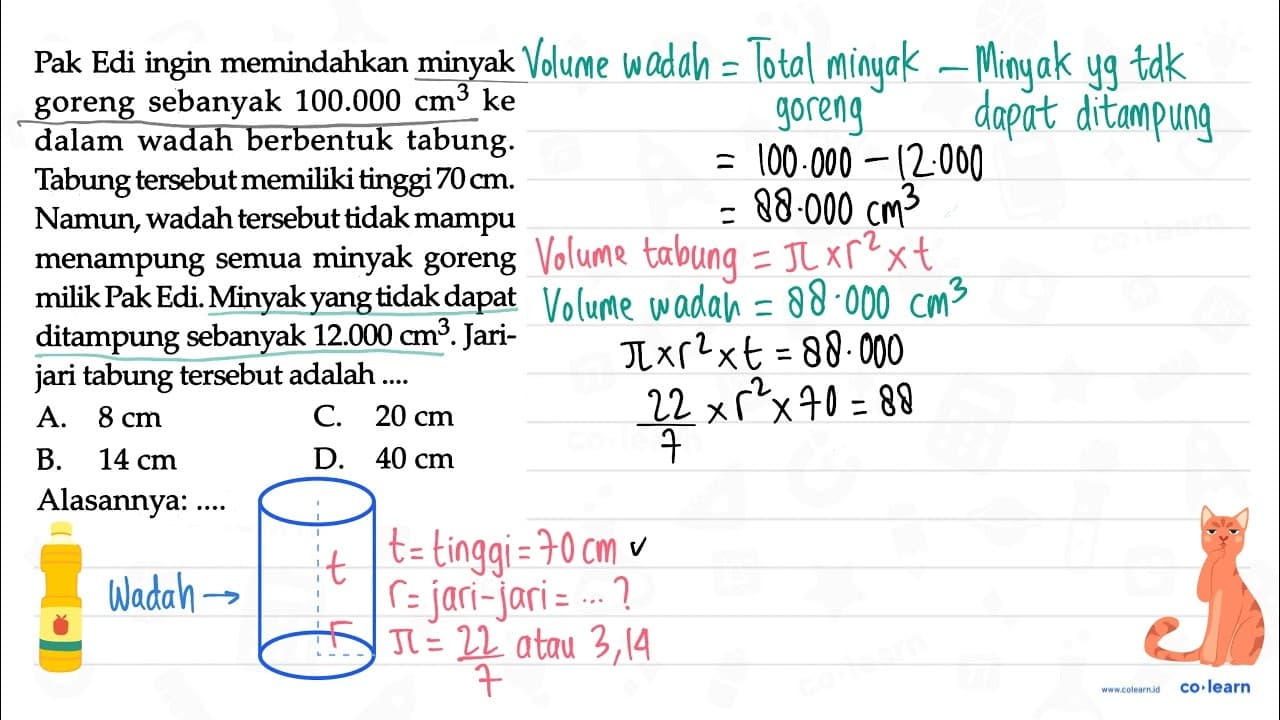 Pak Edi ingin memindahkan minyak
goreng sebanyak 100.000 cm³ ke
dalam wadah berbentuk tabung.
Tabung tersebut memiliki tinggi 70 cm.
Namun, wadah tersebut tidak mampu
menampung semua minyak goreng
milik Pak Edi. Minyak yang tidak dapat
ditampung sebanyak 12.000 cm³. Jari-
jari tabung tersebut adalah ....
A. 8 cm C. 20 cm
B. 14 cm D. 40 cm
Alasannya: ....
Volume wadah = Total minyak goreng − Minyak yg tdk dapat ditampung
= 100.000 − 12.000
= 88.000 cm³
Volume tabung = π × r² × t
Volume wadah = 88.000 cm³
π × r² × t = 88.000
22/7 × r² × 70 = 88
Wadah →
t
r
t = tinggi = 70 cm ✓
r = jari-jari = ... ?
π = 22/7 atau 3,14
www.colearn.id co·learn